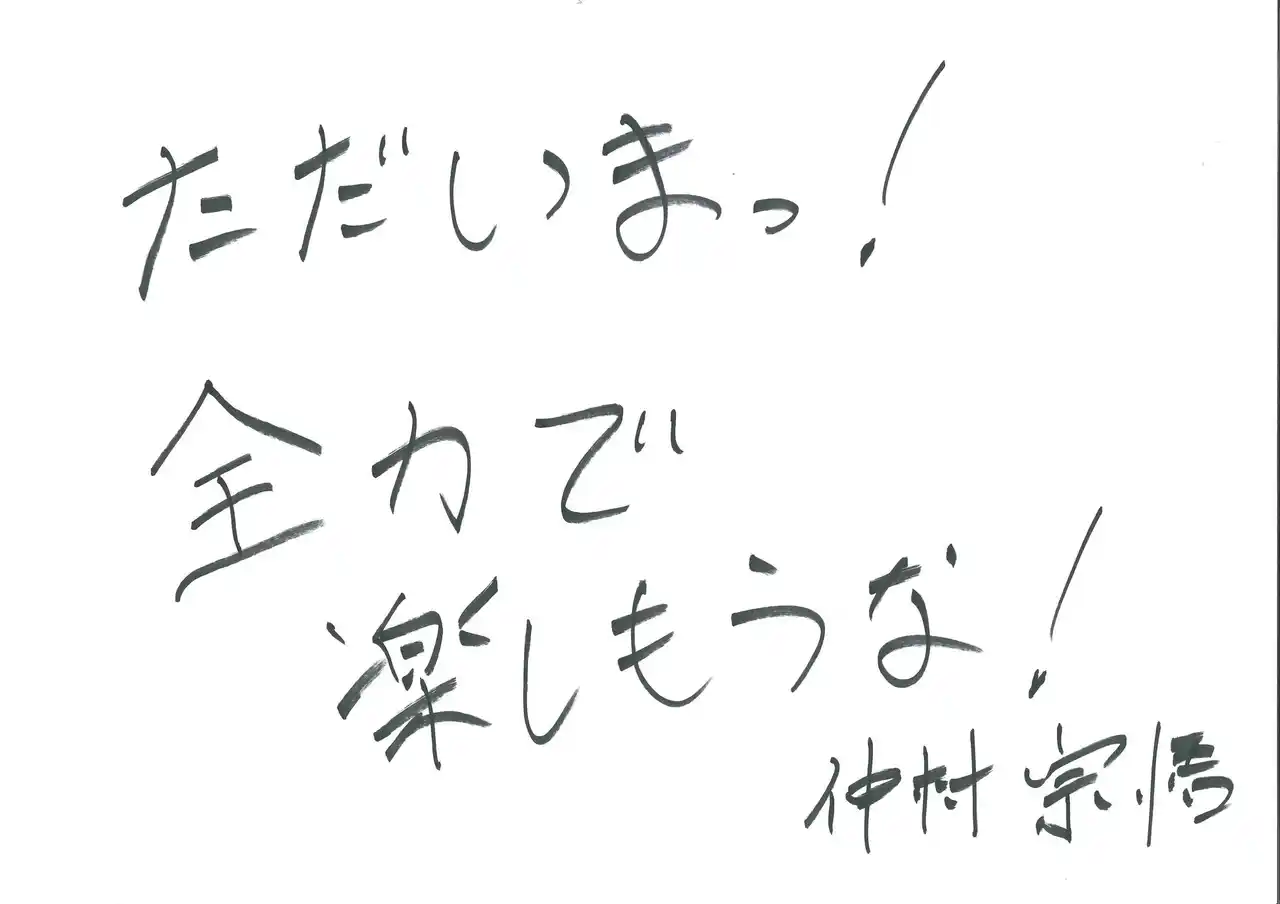 ただいまっ！
全力で
楽しもうな！
仲村宗悟